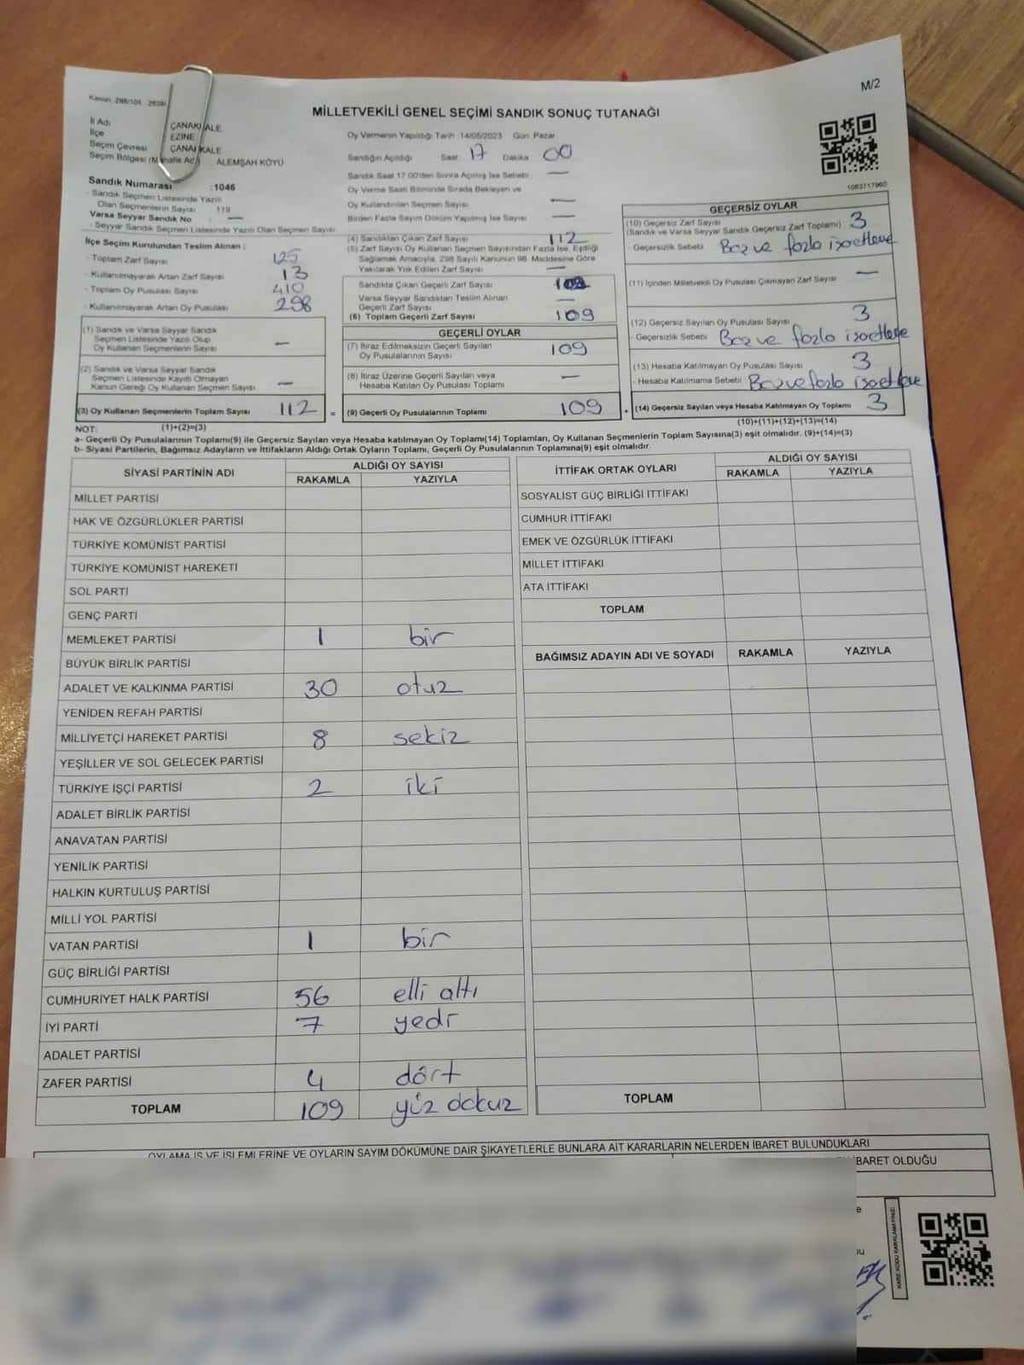 M/2
MİLLETVEKİLİ GENEL SEÇİMİ SANDIK SONUÇ TUTANAĞI
İl Adı ÇANAKKALE
İlçe EZİNE
Seçim Çevresi ÇANAKKALE
Seçim Bölgesi (Mahalle Ad.) ALEMŞAH KÖYÜ
Oy Vermenin Yapıldığı Tarih :14/05/2023 Gün Pazar
Sandığın Açıldığı Saat 17 Dakika 00
Sandık Saat 17:00'den Sonra Açılmış İse Sebebi: —
Oy Verme Saati Bitiminde Sırada Bekleyen ve
Oy Kullandırılan Seçmen Sayısı —
Birden Fazla Sayım Döküm Yapılmış İse Sayısı —
Sandık Numarası :1046
- Sandık Seçmen Listesinde Yazılı
Olan Seçmenlerin Sayısı 119
Varsa Seyyar Sandık No : —
- Seyyar Sandık Seçmen Listesinde Yazılı Olan Seçmen Sayısı
İlçe Seçim Kurulundan Teslim Alınan :
- Toplam Zarf Sayısı 125
- Kullanılmayarak Artan Zarf Sayısı 13
- Toplam Oy Pusulası Sayısı 410
- Kullanılmayarak Artan Oy Pusulası 298
(1) Sandık ve Varsa Seyyar Sandık
Seçmen Listesinde Yazılı Olup
Oy Kullanan Seçmenlerin Sayısı —
(2) Sandık ve Varsa Seyyar Sandık
Seçmen Listesinde Kayıtlı Olmayan
Kanun Gereği Oy Kullanan Seçmen Sayısı —
(3) Oy Kullanan Seçmenlerin Toplam Sayısı 112 =
(1)+(2)=(3)
(4) Sandıktan Çıkan Zarf Sayısı 112
(5) Zarf Sayısı Oy Kullanan Seçmen Sayısından Fazla İse, Eşitliği
Sağlamak Amacıyla, 298 Sayılı Kanunun 98. Maddesine Göre
Yakılarak Yok Edilen Zarf Sayısı —
Sandıkta Çıkan Geçerli Zarf Sayısı 109
Varsa Seyyar Sandıktan Teslim Alınan
Geçerli Zarf Sayısı —
(6) Toplam Geçerli Zarf Sayısı 109
GEÇERLİ OYLAR
(7) İtiraz Edilmeksizin Geçerli Sayılan
Oy Pusulalarının Sayısı 109
(8) İtiraz Üzerine Geçerli Sayılan veya
Hesaba Katılan Oy Pusulası Toplamı —
(9) Geçerli Oy Pusulalarının Toplamı 109
GEÇERSİZ OYLAR
(10) Geçersiz Zarf Sayısı
(Sandık ve Varsa Seyyar Sandık Geçersiz Zarf Toplamı) 3
- Geçersizlik Sebebi
(11) İçinden Milletvekili Oy Pusulası Çıkmayan Zarf Sayısı —
(12) Geçersiz Sayılan Oy Pusulası Sayısı 3
- Geçersizlik Sebebi
(13) Hesaba Katılmayan Oy Pusulası Sayısı 3
- Hesaba Katılmama Sebebi
(14) Geçersiz Sayılan veya Hesaba Katılmayan Oy Toplamı 3
(10)+(11)+(12)+(13)=(14)
NOT:
a- Geçerli Oy Pusulalarının Toplamı(9) ile Geçersiz Sayılan veya Hesaba katılmayan Oy Toplamı(14) Toplamları, Oy Kullanan Seçmenlerin Toplam Sayısına(3) eşit olmalıdır. (9)+(14)=(3)
b- Siyasi Partilerin, Bağımsız Adayların ve İttifakların Aldığı Ortak Oyların Toplamı, Geçerli Oy Pusulalarının Toplamına(9) eşit olmalıdır.
SİYASİ PARTİNİN ADI ALDIĞI OY SAYISI
RAKAMLA YAZIYLA
MİLLET PARTİSİ
HAK VE ÖZGÜRLÜKLER PARTİSİ
TÜRKİYE KOMÜNİST PARTİSİ
TÜRKİYE KOMÜNİST HAREKETİ
SOL PARTİ
GENÇ PARTİ
MEMLEKET PARTİSİ 1 bir
BÜYÜK BİRLİK PARTİSİ
ADALET VE KALKINMA PARTİSİ 30 otuz
YENİDEN REFAH PARTİSİ
MİLLİYETÇİ HAREKET PARTİSİ 8 sekiz
YEŞİLLER VE SOL GELECEK PARTİSİ
TÜRKİYE İŞÇİ PARTİSİ 2 iki
ADALET BİRLİK PARTİSİ
ANAVATAN PARTİSİ
YENİLİK PARTİSİ
HALKIN KURTULUŞ PARTİSİ
MİLLİ YOL PARTİSİ
VATAN PARTİSİ 1 bir
GÜÇ BİRLİĞİ PARTİSİ
CUMHURİYET HALK PARTİSİ 56 elli altı
İYİ PARTİ 7 yedi
ADALET PARTİSİ
ZAFER PARTİSİ 4 dört
TOPLAM 109 yüz dokuz
İTTİFAK ORTAK OYLARI ALDIĞI OY SAYISI
RAKAMLA YAZIYLA
SOSYALİST GÜÇ BİRLİĞİ İTTİFAKI
CUMHUR İTTİFAKI
EMEK VE ÖZGÜRLÜK İTTİFAKI
MİLLET İTTİFAKI
ATA İTTİFAKI
TOPLAM
BAĞIMSIZ ADAYIN ADI VE SOYADI RAKAMLA YAZIYLA
TOPLAM
OYLAMA İŞ VE İŞLEMLERİNE VE OYLARIN SAYIM DÖKÜMÜNE DAİR ŞİKAYETLERLE BUNLARA AİT KARARLARIN NELERDEN İBARET BULUNDUKLARI
İBARET OLDUĞU